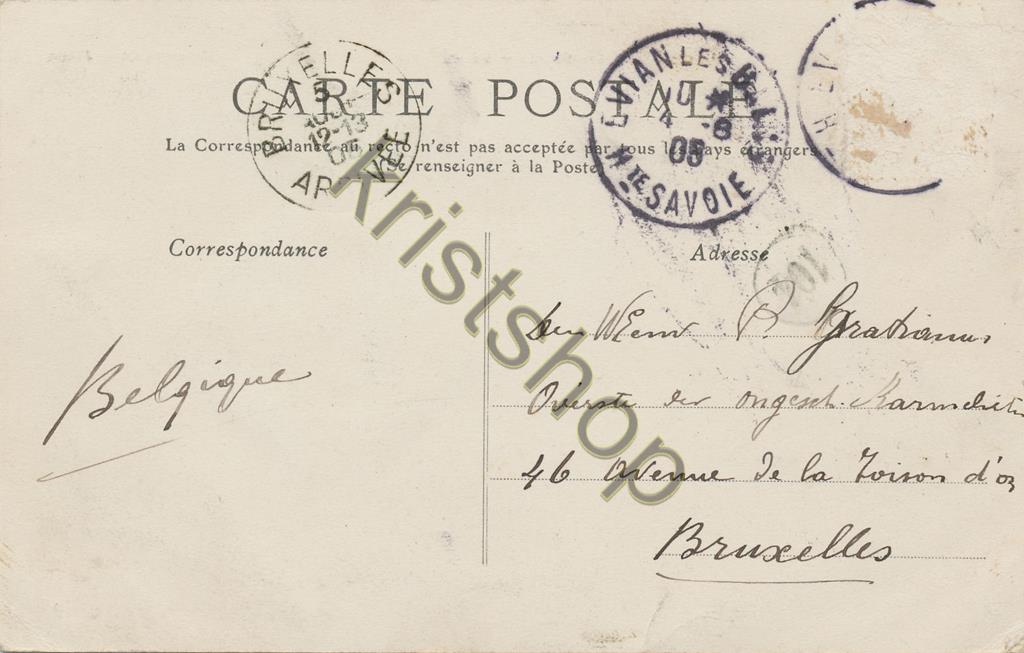 CARTE POSTALE
La Correspondance au recto n'est pas acceptée par tous les pays étrangers
se renseigner à la Poste
BRUXELLES
5
12-13
05
ARRIVÉE
EVIAN LES BAINS
4 -8
05
Hte SAVOIE
Correspondance
Adresse
Belgique
P. Gratianus
Overste der ongesch. Karmelieten
46 Avenue de la Toison d'or
Bruxelles
Kristshop